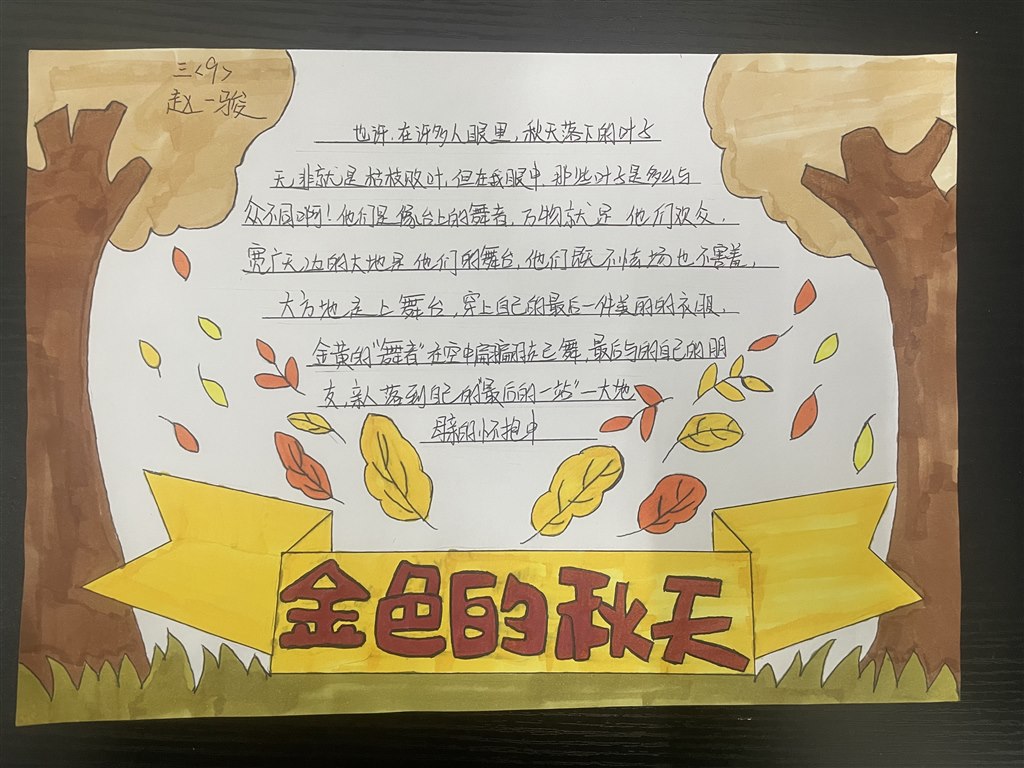 三<9>
赵一骏
也许,在许多人眼里,秋天落下的叶子
无非就是枯枝败叶,但在我眼中,那些叶子是多么与
众不同啊!他们是舞台上的舞者,万物就是他们观众.
宽广无边的大地是他们的舞台,他们既不怯场也不害羞,
大方地走上舞台,穿上自己的最后一件美丽的衣服.
金黄的"舞者"在空中翩翩起舞,最后与的自己的朋
友,亲人落到自己的"最后的一站"一大地
母亲的怀抱中
金色的秋天